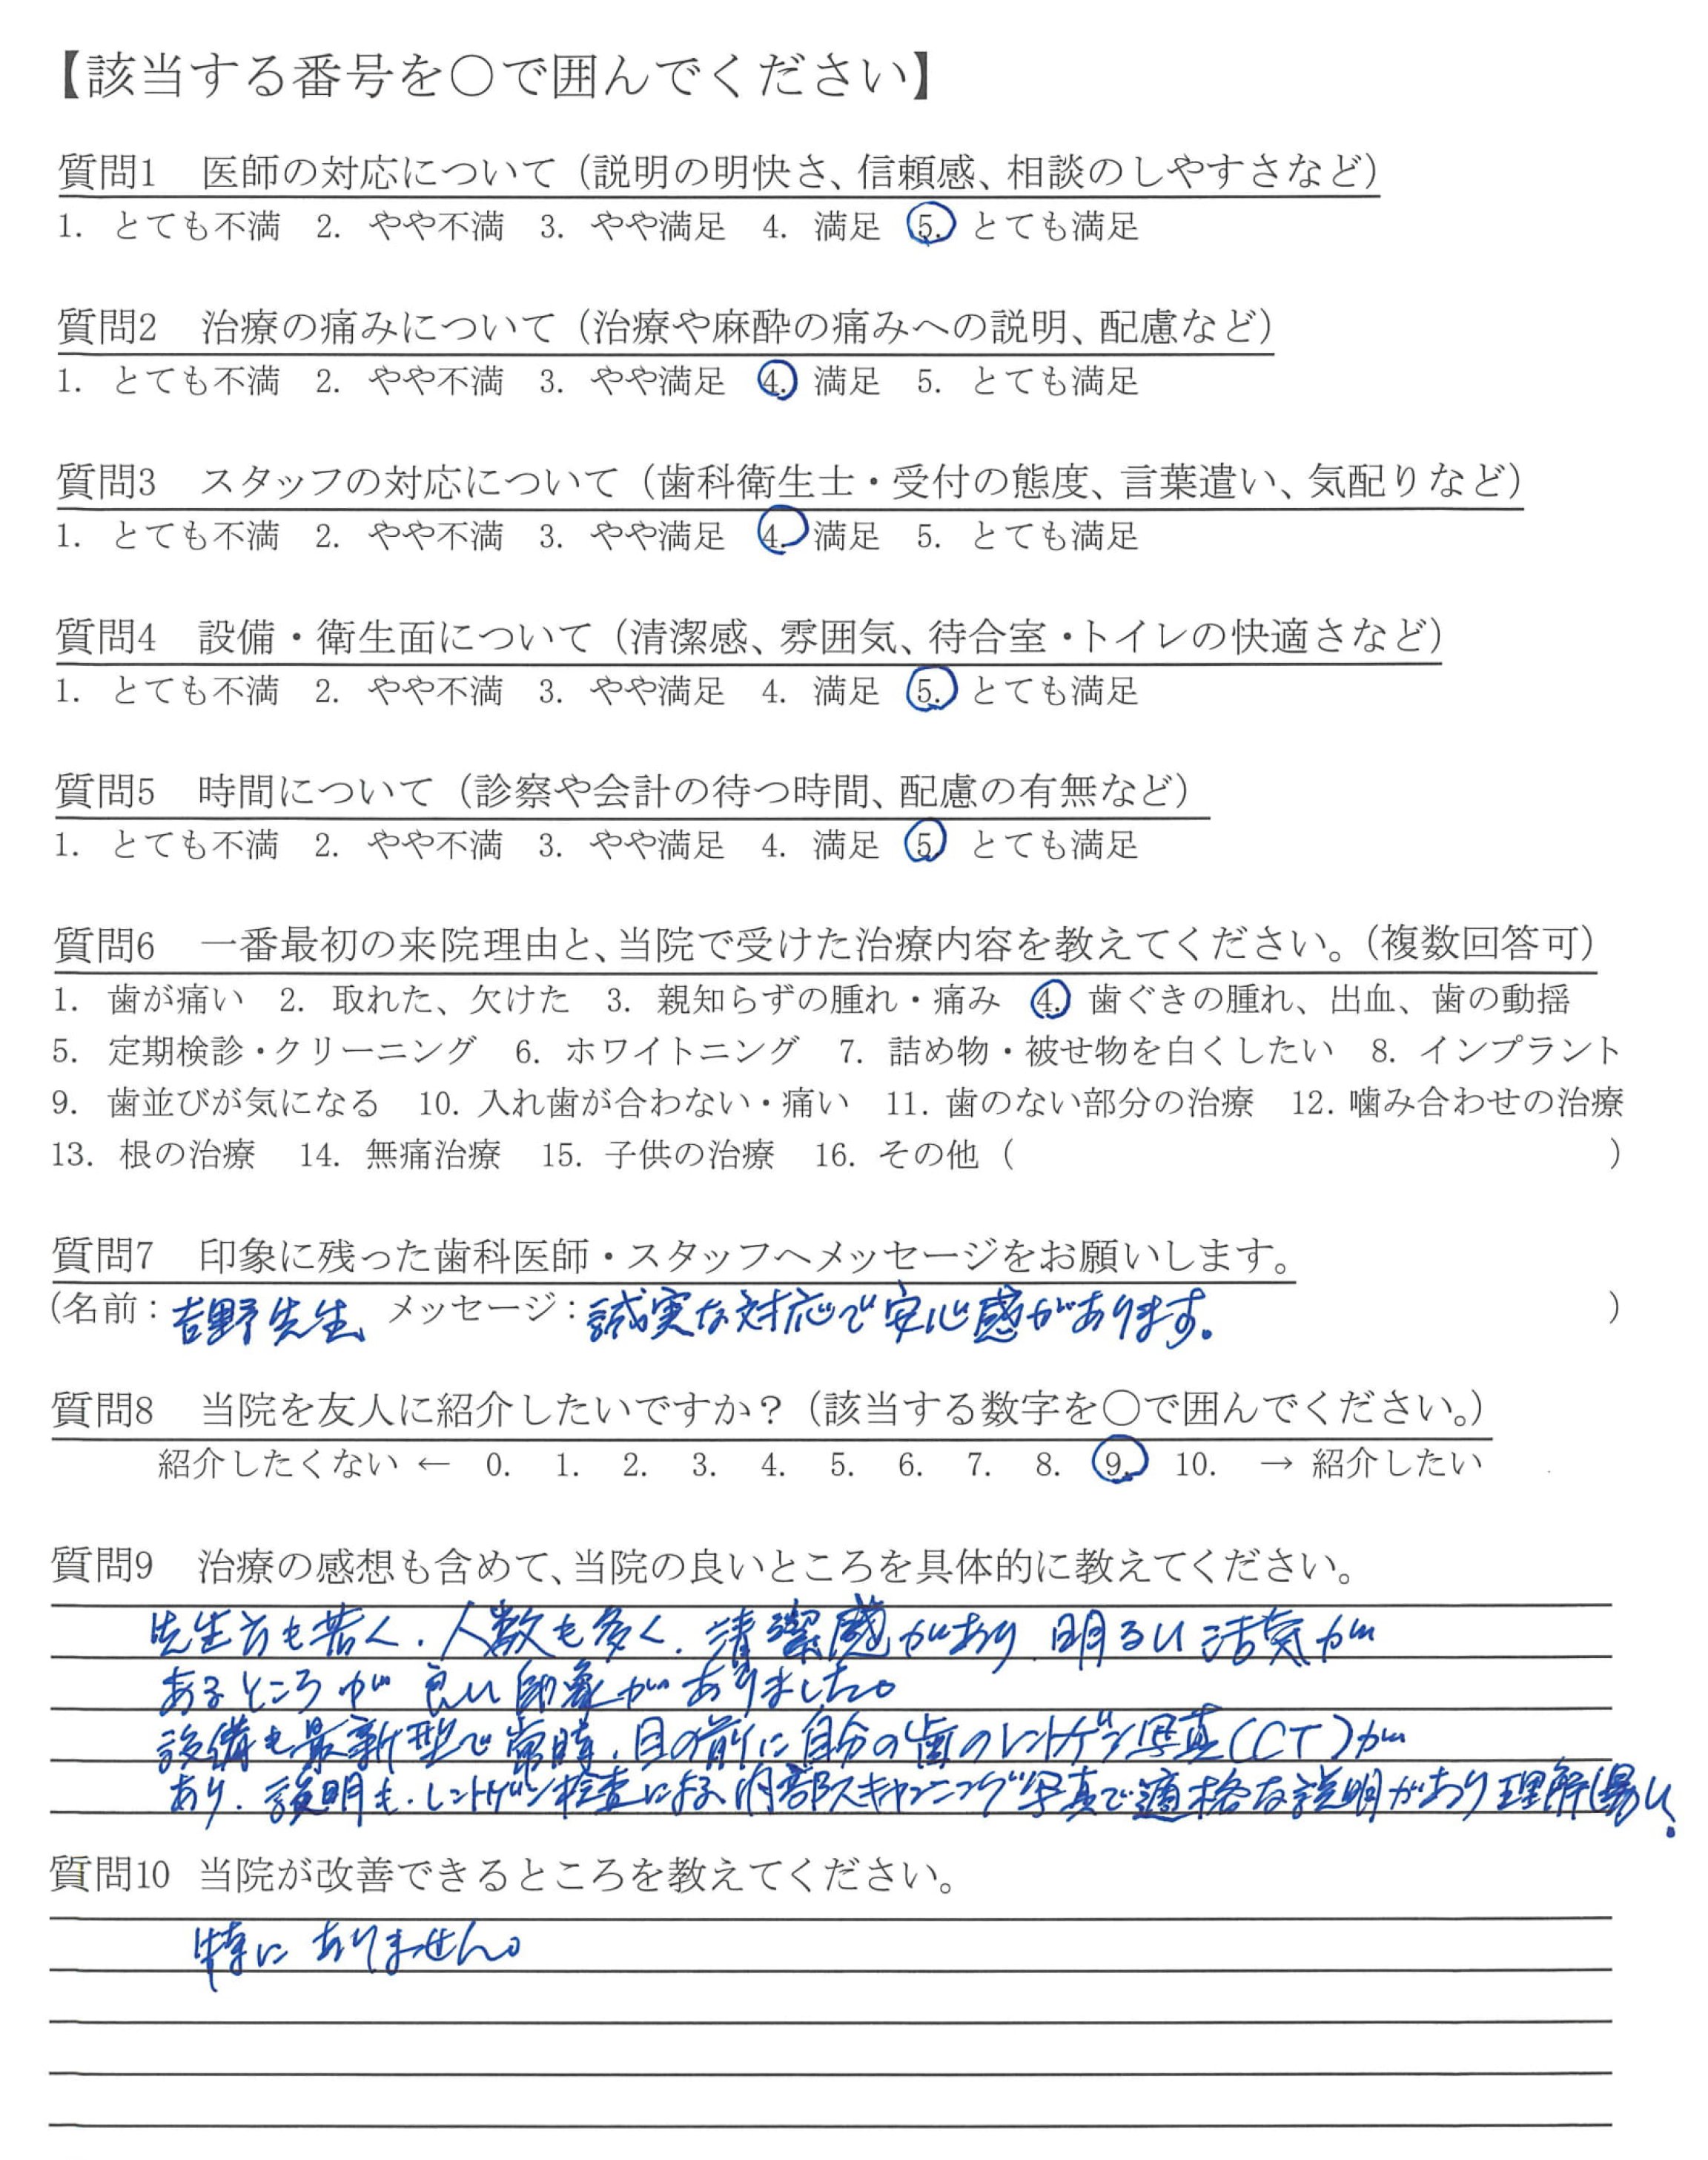 【該当する番号を〇で囲んでください】
質問1　医師の対応について（説明の明快さ、信頼感、相談のしやすさなど）
1. とても不満　2. やや不満　3. やや満足　4. 満足　5. とても満足
質問2　治療の痛みについて（治療や麻酔の痛みへの説明、配慮など）
1. とても不満　2. やや不満　3. やや満足　4. 満足　5. とても満足
質問3　スタッフの対応について（歯科衛生士・受付の態度、言葉遣い、気配りなど）
1. とても不満　2. やや不満　3. やや満足　4. 満足　5. とても満足
質問4　設備・衛生面について（清潔感、雰囲気、待合室・トイレの快適さなど）
1. とても不満　2. やや不満　3. やや満足　4. 満足　5. とても満足
質問5　時間について（診察や会計の待つ時間、配慮の有無など）
1. とても不満　2. やや不満　3. やや満足　4. 満足　5. とても満足
質問6　一番最初の来院理由と、当院で受けた治療内容を教えてください。（複数回答可）
1. 歯が痛い　2. 取れた、欠けた　3. 親知らずの腫れ・痛み　4. 歯ぐきの腫れ、出血、歯の動揺
5. 定期検診・クリーニング　6. ホワイトニング　7. 詰め物・被せ物を白くしたい　8. インプラント
9. 歯並びが気になる　10. 入れ歯が合わない・痛い　11. 歯のない部分の治療　12. 噛み合わせの治療
13. 根の治療　14. 無痛治療　15. 子供の治療　16. その他（　　　）
質問7　印象に残った歯科医師・スタッフへメッセージをお願いします。
（名前：吉野先生　メッセージ：誠実な対応で安心感があります。　）
質問8　当院を友人に紹介したいですか？（該当する数字を〇で囲んでください。）
紹介したくない ← 0. 1. 2. 3. 4. 5. 6. 7. 8. 9. 10. → 紹介したい
質問9　治療の感想も含めて、当院の良いところを具体的に教えてください。
先生方も若く、人数も多く、清潔感があり、明るい活気が
あるところが良い印象がありました。
設備も最新型で常時、目の前に自分の歯のレントゲン写真（CT）が
あり、説明も、レントゲン検査による内部スキャンニング写真で適格な説明があり理解し易い。
質問10　当院が改善できるところを教えてください。
特にありません。